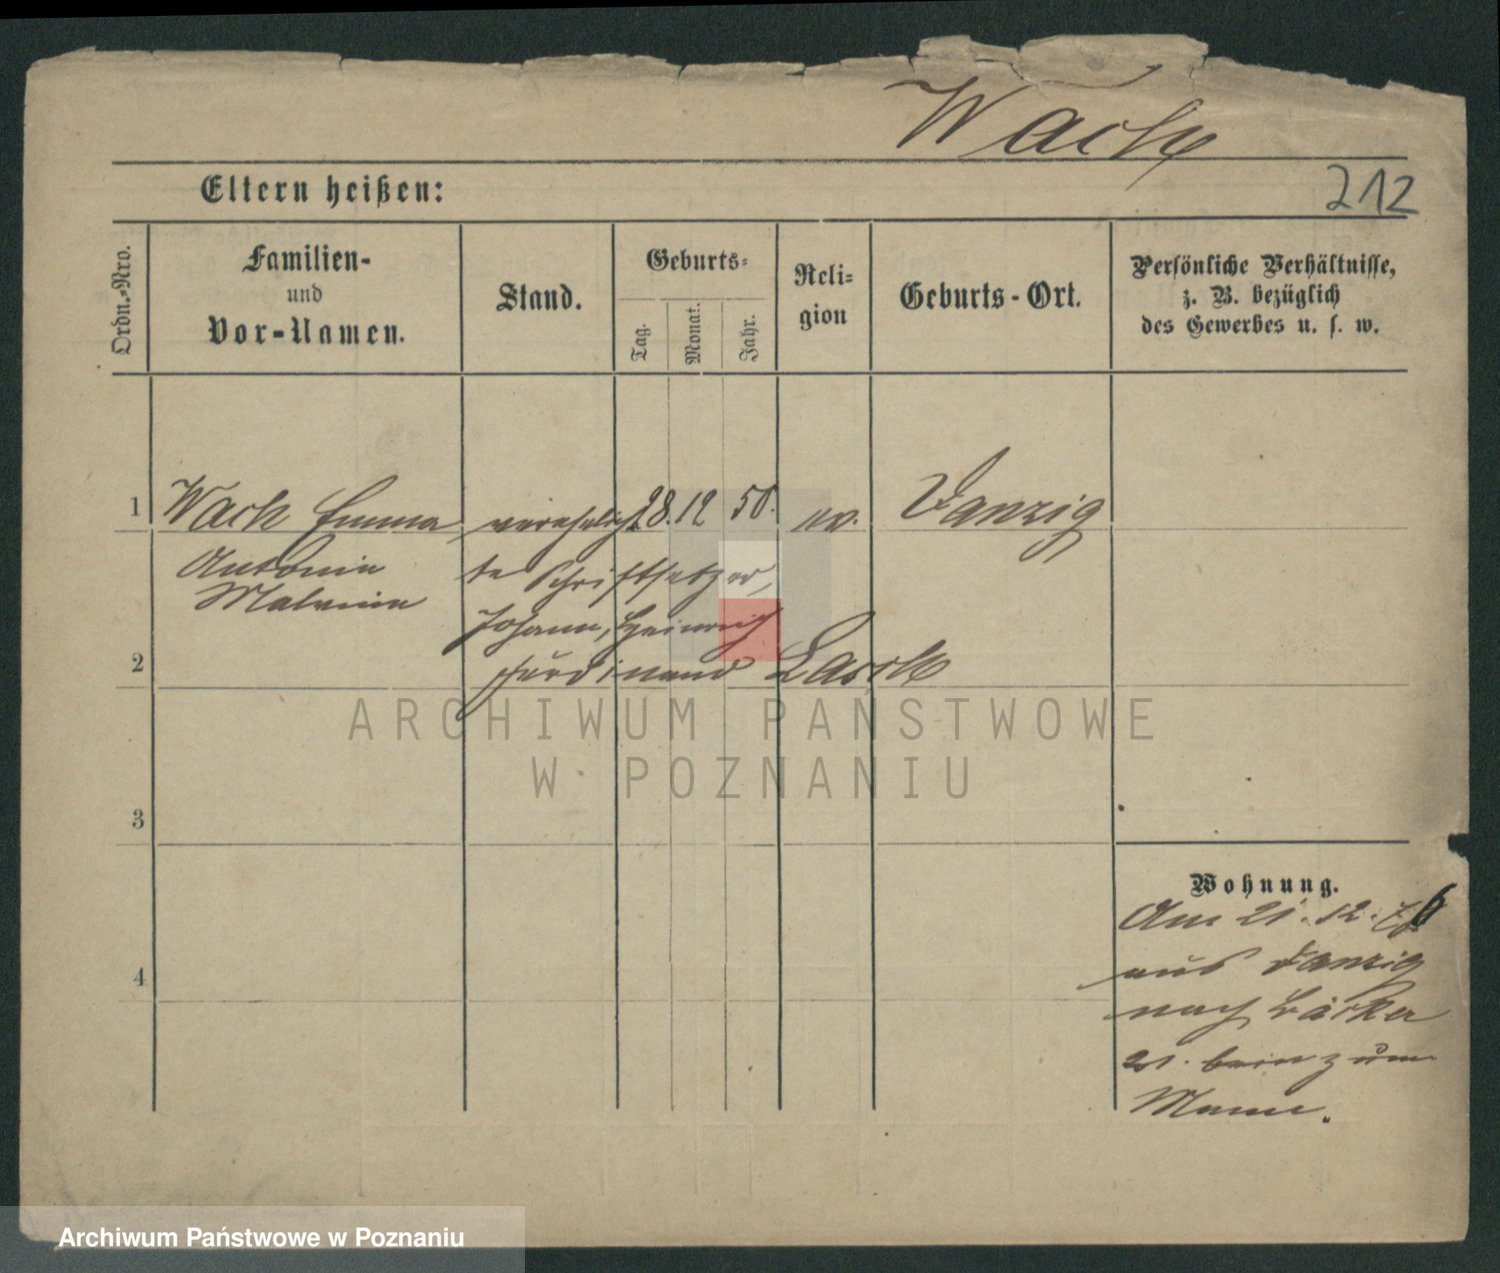 Wach
212
Eltern heißen:
Ordn.-Nro.
Familien-
und
Vor-Namen.
Stand.
Geburts-
Tag.
Monat.
Jahr.
Reli-
gion
Geburts-Ort.
Persönliche Verhältnisse,
z. B. bezüglich
des Gewerbes u. s. w.
1 Wach Emma verehelich 28. 12 50. ev. Danzig
Antonie te Schriftsetzer,
Malwine
Johann, Heinrich
2
Ferdinand
ARCHIWUM PAŃSTWOWE
W POZNANIU
3
Wohnung.
Am 21. 12. 76
aus Danzig
nach Bäcker
4
21. zum
Manne.
Archiwum Państwowe w Poznaniu